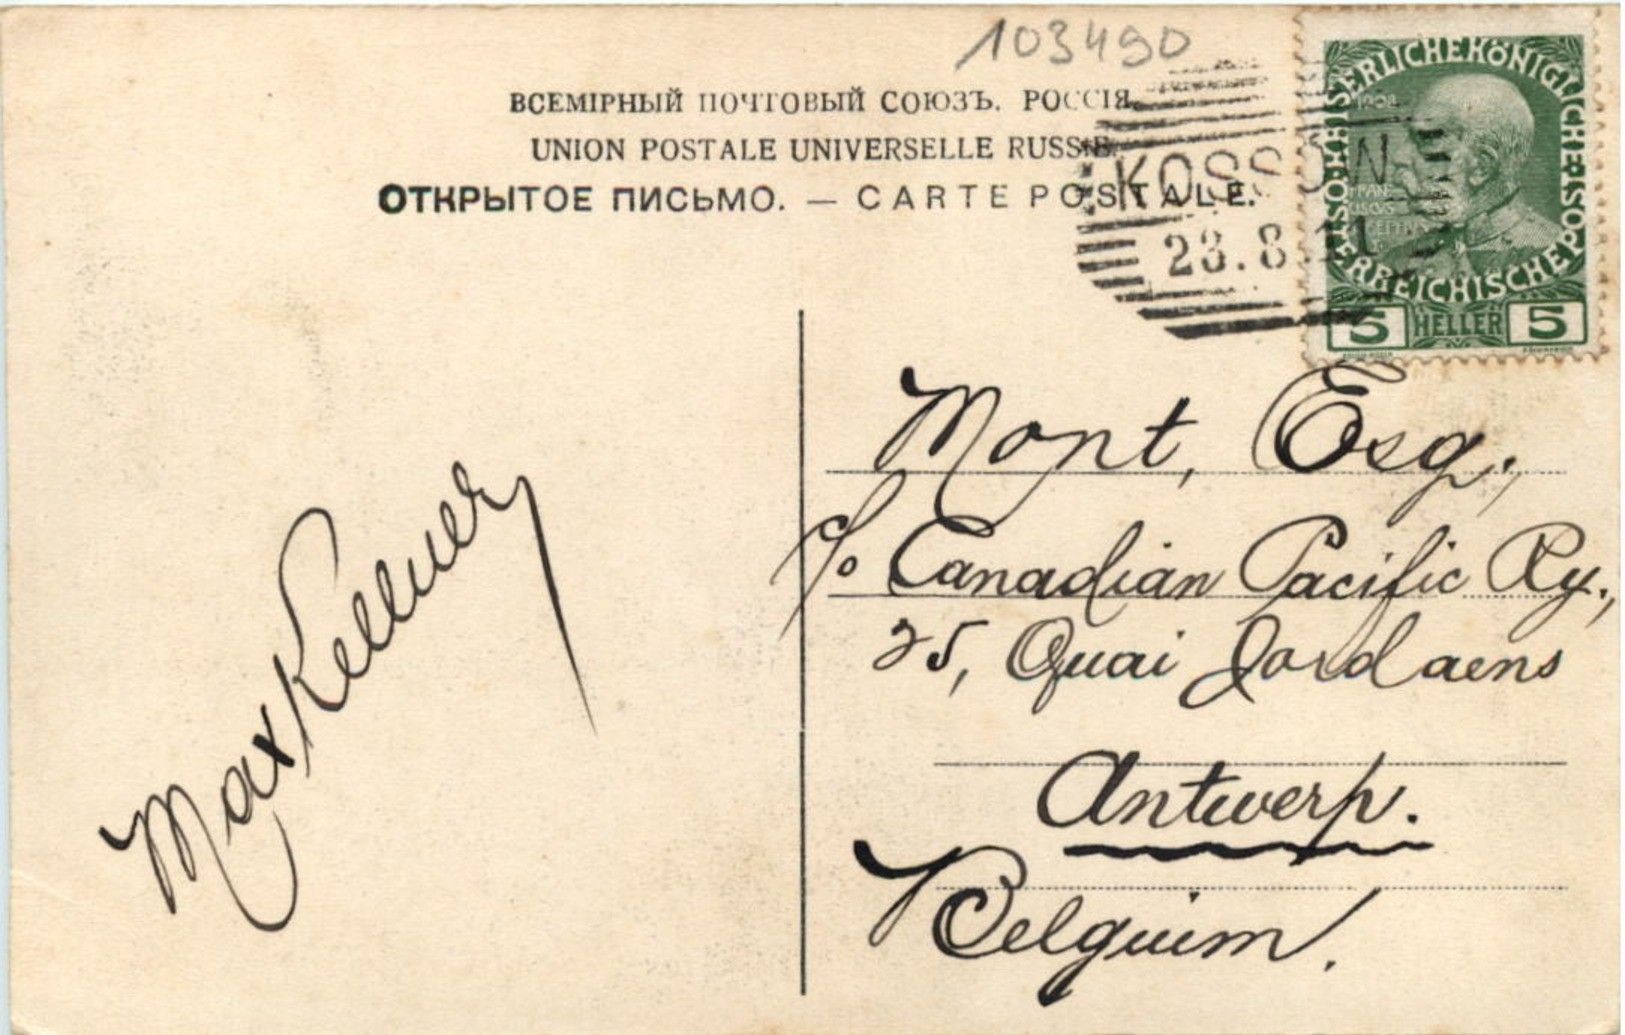 103490
ВСЕМІРНЫЙ ПОЧТОВЫЙ СОЮЗЪ. РОССІЯ.
UNION POSTALE UNIVERSELLE RUSSIE.
ОТКРЫТОЕ ПИСЬМО. — CARTE POSTALE.
KAISERLICHE KÖNIGLICHE ÖSTERREICHISCHE POST
1908
5 HELLER 5
KOSSOW
23.8.11
Mont, Esq.,
c/o Canadian Pacific Ry.,
25, Quai Jordaens
Antwerp.
Belguim.
Max Kellner